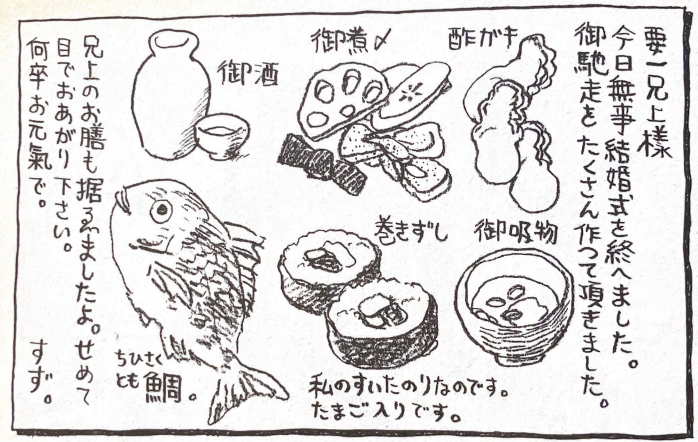 要一兄上様
今日無事結婚式を終へました。
御馳走をたくさん作つて頂ぎました。
酢ガキ
御煮〆
御酒
御吸物
巻きずし
私のすいたのりなのです。
たまご入りです。
ちひさく
とも鯛。
兄上のお膳も据ゑましたよ。せめて
目でおあがり下さい。
何卒お元氣で。
すず。